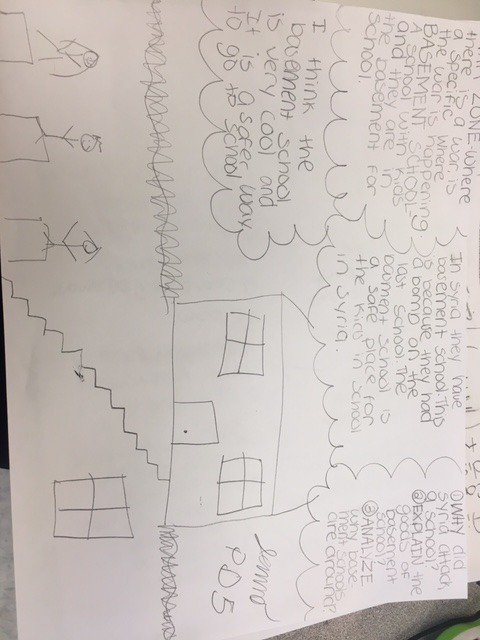 ZONE where
there is a war. is
a specific where
the war is happening.
BASEMENT SCHOOL-
A school with kids
and they are in
the basement for
school.
In Syria they have
basement school. This
is because they had
a bomb on the
last school. The
bament school is
a safe place for
the kids in school
in Syria.
①WHY did
Syria attack
a school?
②EXPLAIN the
goods of
basement
school.
③ANALYZE
why base-
ment schools
are around?
I think the
basement school
is very cool and
It is a safer way
to go to school
PD5